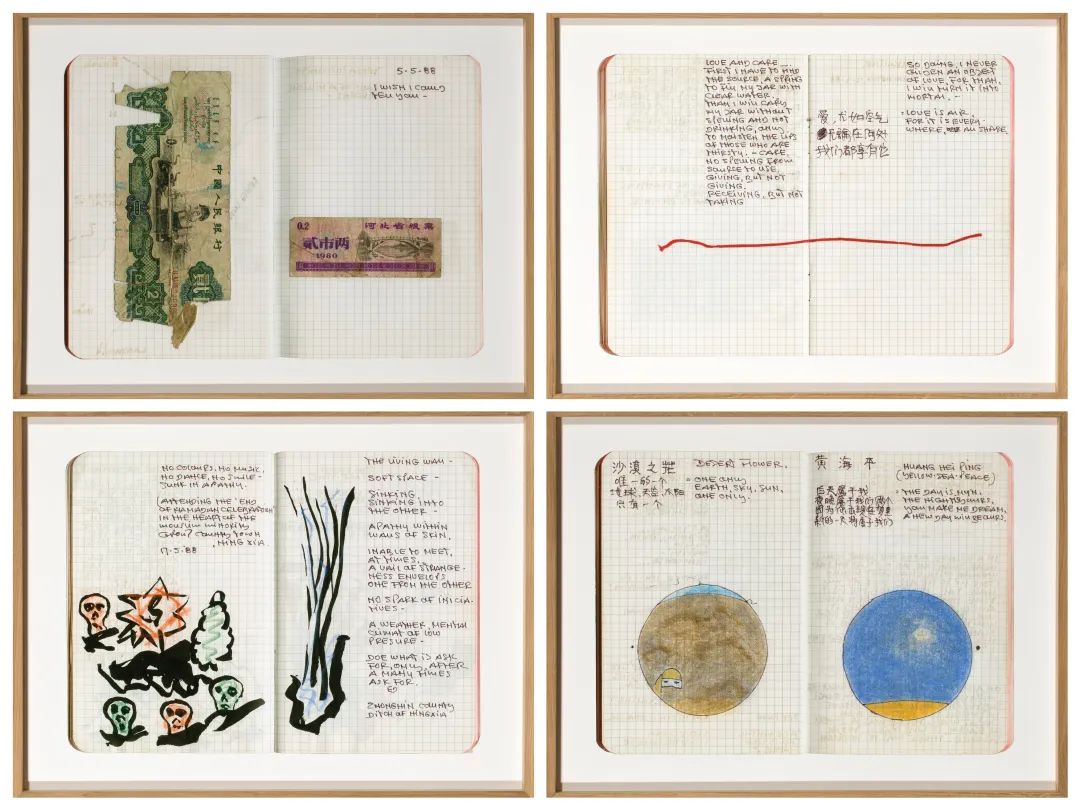 5-5-88
I WISH I COULD
TELL YOU -
中国人民银行
0.2
河北省粮票
贰市两
1980
LOVE AND CARE -
FIRST I HAVE TO FIND
THE SOURCE, A SPRING
TO FILL MY JAR WITH
CLEAR WATER.
THAN I WILL CARY
MY JAR WITHOUT
SPEWING AND NOT
DRINKING, ONLY
TO MOISTEN THE LIPS
OF THOSE WHO ARE
THIRSTY. - CARE,
NO SPEWING FROM
SOURCE TO USE,
GIVING, BUT NOT
GIVING.
RECEIVING, BUT NOT
TAKING
爱,尤如空气
无偏在何处
我们都享有它
SO DOING, I NEVER
AN OBJECT
OF LOVE, FOR THAN,
I WILL TURN IT INTO
MORTAL. -
- LOVE IS AIR.
FOR IT IS EVERY-
WHERE, ALL SHARE
NO COLOURS, NO MUSIC,
NO DANCE, NO SMILE -
SUNK IN APATHY.
ATTENDING THE 'END
OF RAMADAN CELEBRATION'
IN THE HEART OF THE
MOUSLIM MINORITY
GROUP COUNTY TOWN
, NINGXIA.
17.5.88
THE LIVING WALL -
SOFT SPACE -
SINKING,
SINKING INTO
THE OTHER -
APATHY WITHIN
WALLS OF SKIN.
INABLE TO MEET,
AT TIMES,
A VAIL OF STRANGE-
NESS ENVELOPS
ONE FROM THE OTHER
NO SPARK OF INICIA-
TIVES -
A WEATHER, MENTAL
CLIMAT OF LOW
PRESURE -
DOE WHAT IS ASK
FOR, ONLY, AFTER
A MANY TIMES
ASK FOR.
ZHONGNIN COUNTY
DITCH OF NINGXIA
沙漠之茫
唯一的一个
地球,天空,太阳
只有一个
DESERT FLOWER.
- ONE ONLY
EARTH, SKY, SUN,
ONE ONLY -
黄海平
白天属于我
夜晚属于我们两个
因为你击球在梦里
新的一天将属于我们
HUANG HEI PING
(YELLOW-SEA-PEACE)
- THE DAY IS MYN.
THE NIGHT IS OURS,
YOU MAKE ME DREAM,
A NEW DAY WILL BE OURS.